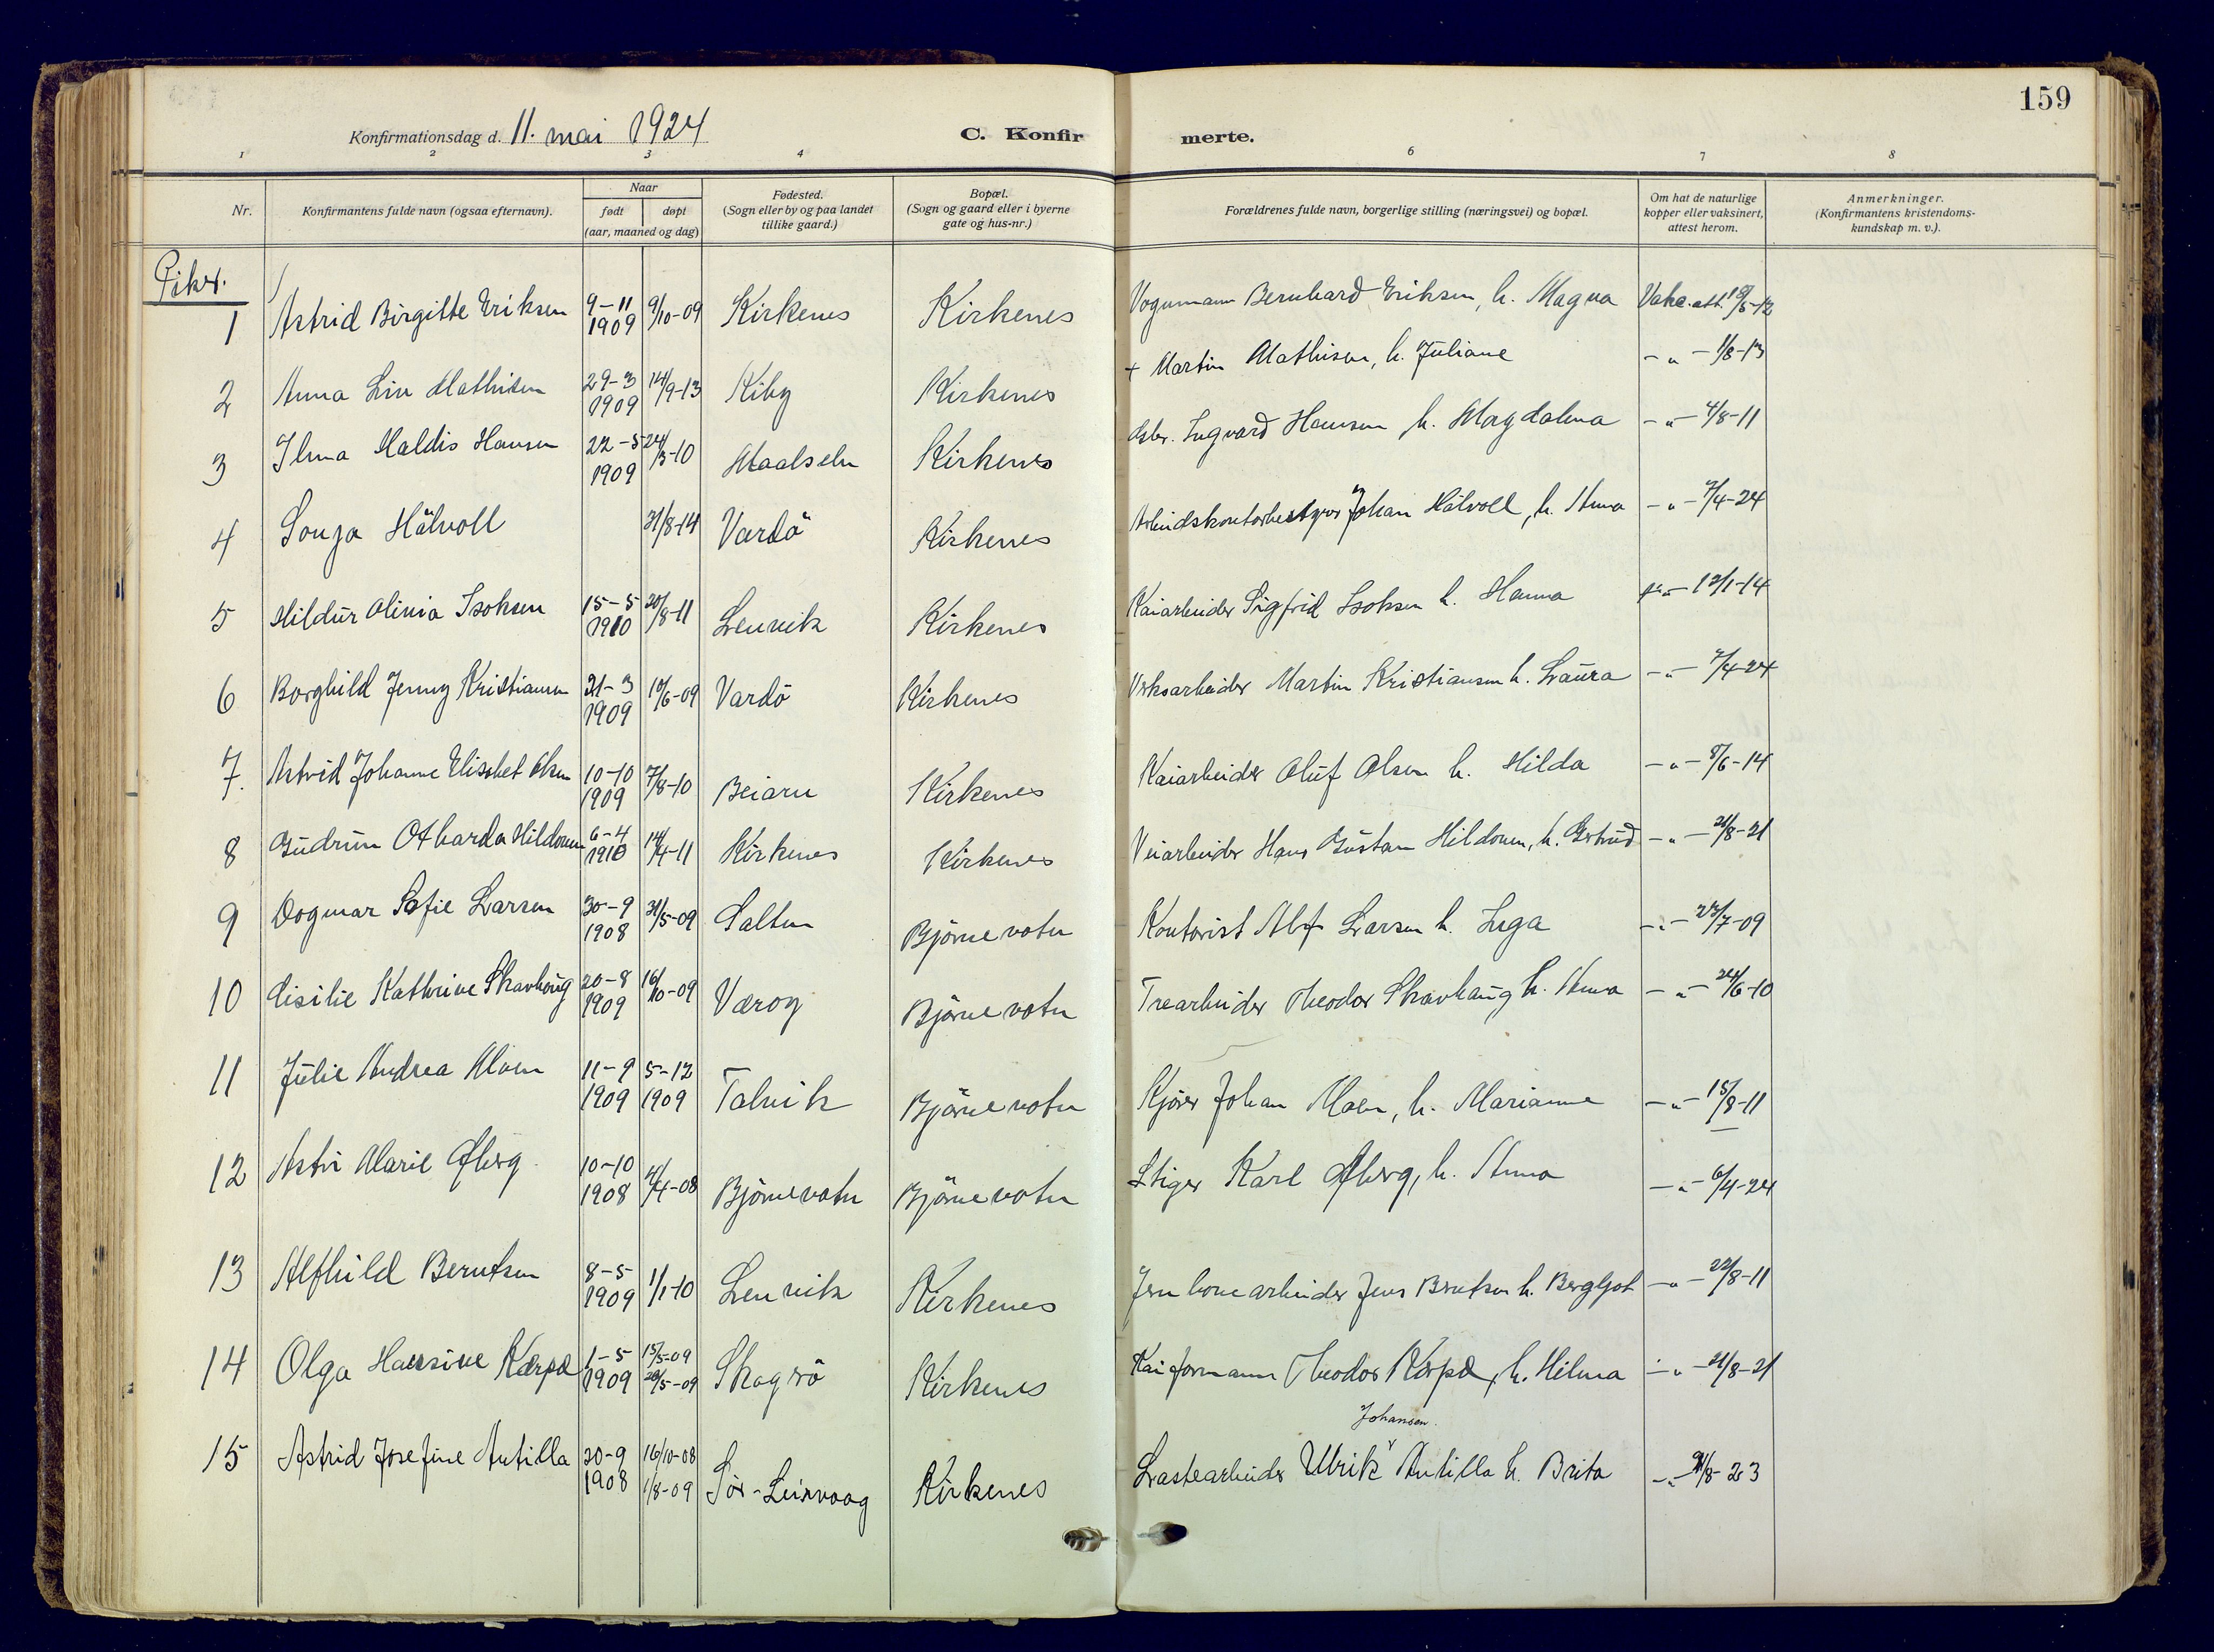 159
Konfirmationsdag d. 11. mai 1924
C. Konfir merte.
1 2 3 4 6 7 8
Nr.
Konfirmantens fulde navn (ogsaa efternavn).
Naar
født døpt
(aar, maaned og dag)
Fødested.
(Sogn eller by og paa landet
tillike gaard.)
Bopæl.
(Sogn og gaard eller i byerne
gate og hus-nr.)
Forældrenes fulde navn, borgerlige stilling (næringsvei) og bopæl.
Om hat de naturlige
kopper eller vaksinert,
attest herom.
Anmerkninger.
(Konfirmantens kristendoms-
kundskap m. v.).
Piker.
1 Astrid Birgitte Eriksen 9-11 1909 9/10-09 Kirkenes Kirkenes Vognmann Bernhard Eriksen, h. Magna Vakc. att.
2 Anna Liv Mathisen 29-3 1909 14/9-13 Kiby Kirkenes + Martin Mathisen, h. Juliane -"- 1/8-13
3 Haldis Hansen 22-5 1909 24/3-10 Maalselv Kirkenes Ingvard Hansen h. Magdalena -"- 4/8-11
4 Sonja Hälvoll 31/8-14 Vardö Kirkenes Arbeidskontorbestyrer Johan Hälvoll, h. Anna -"- 7/4-24
5 Hildur Olivia Isaksen 15-5 1910 20/8-11 Lenvik Kirkenes Kaiarbeider Sigfrid Isaksen h. Hanna -"- 12/1-14
6 Borghild Jenny Kristiansen 21-3 1909 18/6-09 Vardö Kirkenes Verksarbeider Martin Kristiansen h. Laura -"- 7/4-24
7. Astrid Johanne Elisabet Olsen 10-10 1909 7/8-10 Beiarn Kirkenes Kaiarbeider Oluf Olsen h. Hilda -"- 8/6-14
8 Gudrun Otharda Hildonen 6-4 1910 14/4-11 Kirkenes Kirkenes Veiarbeider Hans Gustav Hildonen, h. Gertrud -"- 21/8-21
9 Dagmar Sofie Larsen 30-9 1908 31/5-09 Salten Björnevatn Kontorist Alf Larsen h. Inga -"- 23/7-09
10 Cisilie Kathrine Skavhaug 20-8 1909 16/10-09 Værøy Björnevatn Trearbeider Theodor Skavhaug h. Anna -"- 24/6-10
11 Julie Andrea Moen 11-9 1909 5-12 1909 Talvik Björnevatn Kjører Johan Moen, h. Marianne -"- 15/8-11
12 Astri Marie Øberg 10-10 1908 Björnevatn Björnevatn Stiger Karl Øberg, h. Anna -"- 6/4-24
13 Alfhild Berntsen 8-5 1909 1/1-10 Lenvik Kirkenes Jernbanearbeider Jens Berntsen h. Bergljot -"- 22/8-11
14 Olga Hansine Karpæ 1-5 1909 15/5-09 20/5-09 Skogrö Kirkenes Kaiformann Theodor Karpæ, h. Hilma -"- 21/8-21
15 Astrid Josefine Antilla 20-9 1908 16/10-08 1/8-09 Sör-Leirvaag Kirkenes Lastearbeider Ulrik Johansen Antilla h. Brita -"- 23